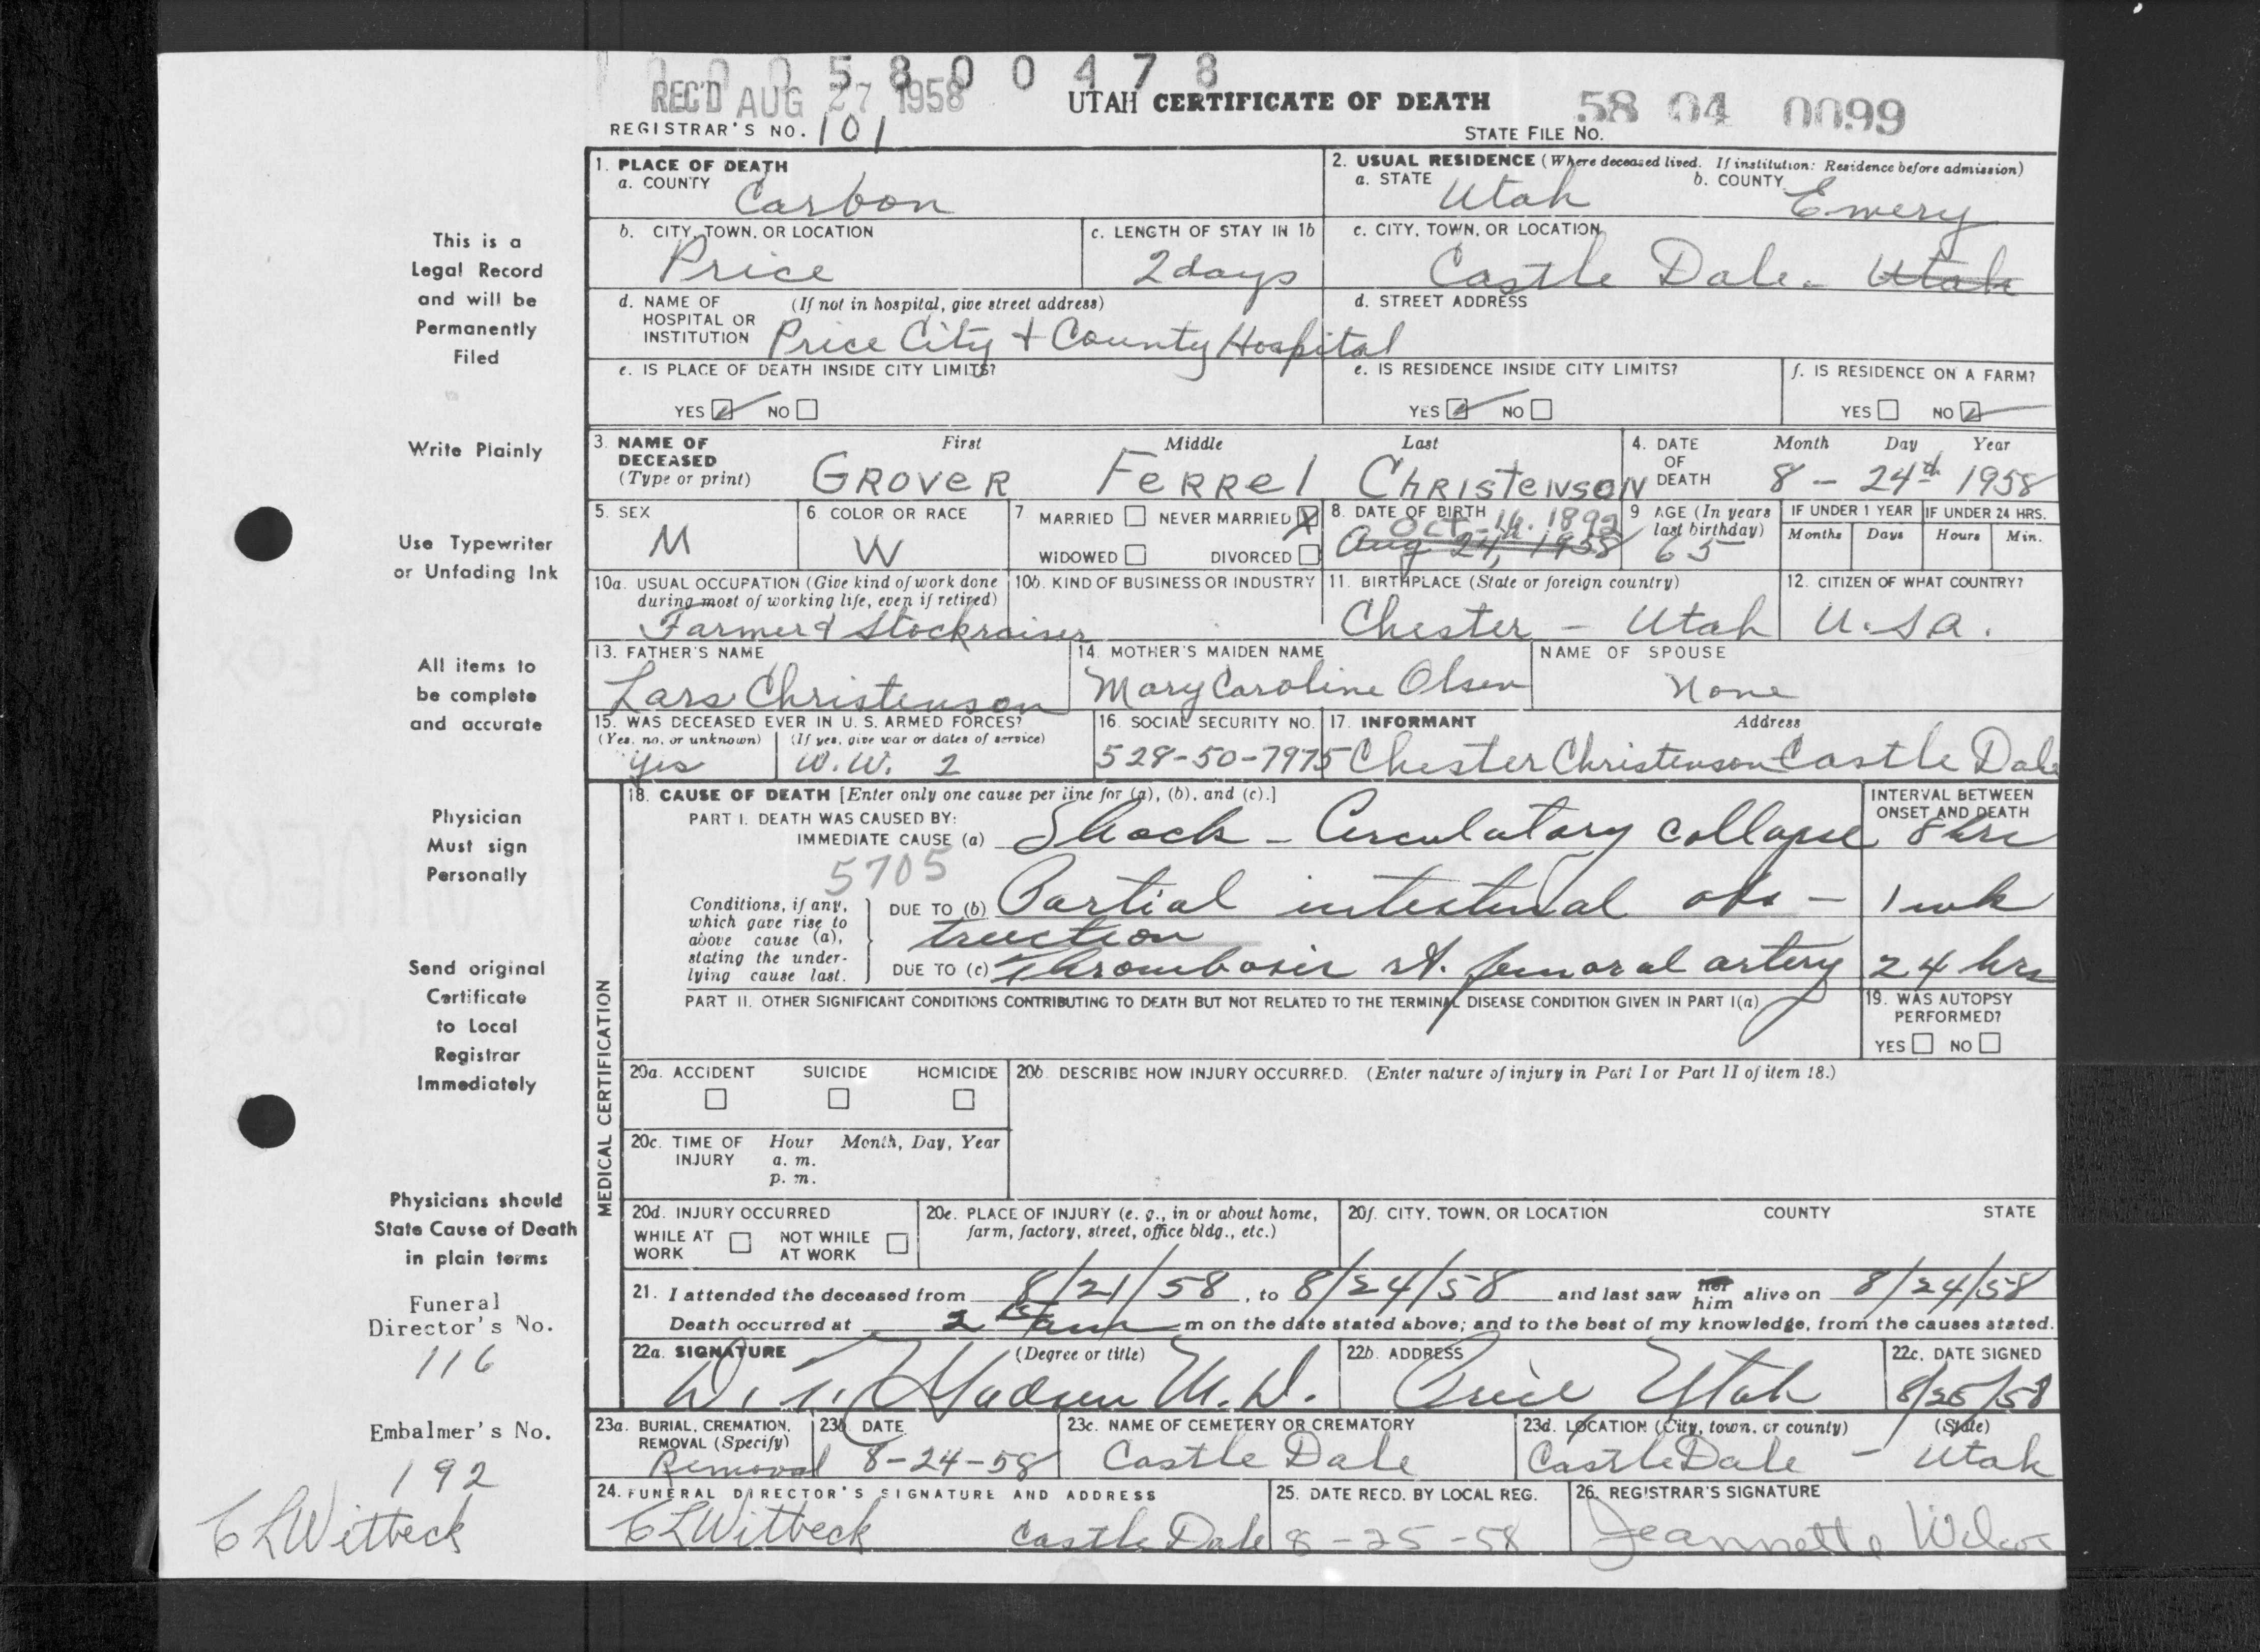 0 0 0 5 8 0 0 4 7 8
REC'D AUG 27 1958
UTAH CERTIFICATE OF DEATH
58 04 0099
REGISTRAR'S NO. 101
STATE FILE NO.
This is a
Legal Record
and will be
Permanently
Filed
Write Plainly
Use Typewriter
or Unfading Ink
All items to
be complete
and accurate
Physician
Must sign
Personally
Send original
Certificate
to Local
Registrar
Immediately
Physicians should
State Cause of Death
in plain terms
Funeral
Director's No.
116
Embalmer's No.
192
C L Witbeck
1. PLACE OF DEATH
a. COUNTY Carbon
2. USUAL RESIDENCE (Where deceased lived. If institution: Residence before admission)
a. STATE Utah b. COUNTY Emery
b. CITY, TOWN, OR LOCATION Price
c. LENGTH OF STAY IN 1b 2 days
c. CITY, TOWN, OR LOCATION Castle Dale - Utah
d. NAME OF (If not in hospital, give street address)
HOSPITAL OR
INSTITUTION Price City + County Hospital
d. STREET ADDRESS
e. IS PLACE OF DEATH INSIDE CITY LIMITS?
YES NO
e. IS RESIDENCE INSIDE CITY LIMITS?
YES NO
f. IS RESIDENCE ON A FARM?
YES NO
3. NAME OF DECEASED (Type or print)
First Middle Last
GROVER FERREl ChRISteNSON
4. DATE OF DEATH Month Day Year
8 - 24th 1958
5. SEX M
6. COLOR OR RACE W
7 MARRIED NEVER MARRIED X
WIDOWED DIVORCED
8. DATE OF BIRTH Oct. 16. 1892
Aug 24, 1958
9 AGE (In years last birthday) 65
IF UNDER 1 YEAR IF UNDER 24 HRS.
Months Days Hours Min.
10a. USUAL OCCUPATION (Give kind of work done
during most of working life, even if retired)
Farmer & Stockraiser
10b. KIND OF BUSINESS OR INDUSTRY
11. BIRTHPLACE (State or foreign country)
Chester - Utah
12. CITIZEN OF WHAT COUNTRY?
U.S.A.
13. FATHER'S NAME
Lars Christenson
14. MOTHER'S MAIDEN NAME
Mary Caroline Olsen
NAME OF SPOUSE
None
15. WAS DECEASED EVER IN U. S. ARMED FORCES?
(Yes, no, or unknown) (If yes, give war or dates of service)
yes W.W. 2
16. SOCIAL SECURITY NO.
528-50-7975
17. INFORMANT Address
Chester Christenson Castle Dale
MEDICAL CERTIFICATION
18. CAUSE OF DEATH [Enter only one cause per line for (a), (b), and (c).]
INTERVAL BETWEEN
ONSET AND DEATH
PART I. DEATH WAS CAUSED BY:
IMMEDIATE CAUSE (a) Shock - Circulatory collapse 8 hrs
5705
Conditions, if any,
which gave rise to
above cause (a),
stating the under-
lying cause last.
DUE TO (b) Partial intestinal obs- 1 wk
truction
DUE TO (c) Thrombosis rt. femoral artery 24 hrs
PART II. OTHER SIGNIFICANT CONDITIONS CONTRIBUTING TO DEATH BUT NOT RELATED TO THE TERMINAL DISEASE CONDITION GIVEN IN PART I(a)
19. WAS AUTOPSY
PERFORMED?
YES NO
20a. ACCIDENT SUICIDE HOMICIDE
20b. DESCRIBE HOW INJURY OCCURRED. (Enter nature of injury in Part I or Part II of item 18.)
20c. TIME OF INJURY Hour Month, Day, Year
a. m.
p. m.
20d. INJURY OCCURRED
WHILE AT WORK NOT WHILE AT WORK
20e. PLACE OF INJURY (e. g., in or about home,
farm, factory, street, office bldg., etc.)
20f. CITY, TOWN, OR LOCATION COUNTY STATE
21. I attended the deceased from 8/21/58, to 8/24/58 and last saw her him alive on 8/24/58
Death occurred at 2 am m on the date stated above; and to the best of my knowledge, from the causes stated.
22a. SIGNATURE (Degree or title)
M.D.
22b. ADDRESS
Price Utah
22c. DATE SIGNED
8/25/58
23a. BURIAL, CREMATION,
REMOVAL (Specify)
Removal
23b. DATE
8-24-58
23c. NAME OF CEMETERY OR CREMATORY
Castle Dale
23d. LOCATION (City, town, or county) (State)
Castle Dale - Utah
24. FUNERAL DIRECTOR'S SIGNATURE AND ADDRESS
C L Witbeck Castle Dale
25. DATE RECD. BY LOCAL REG.
8-25-58
26. REGISTRAR'S SIGNATURE
Jeannette